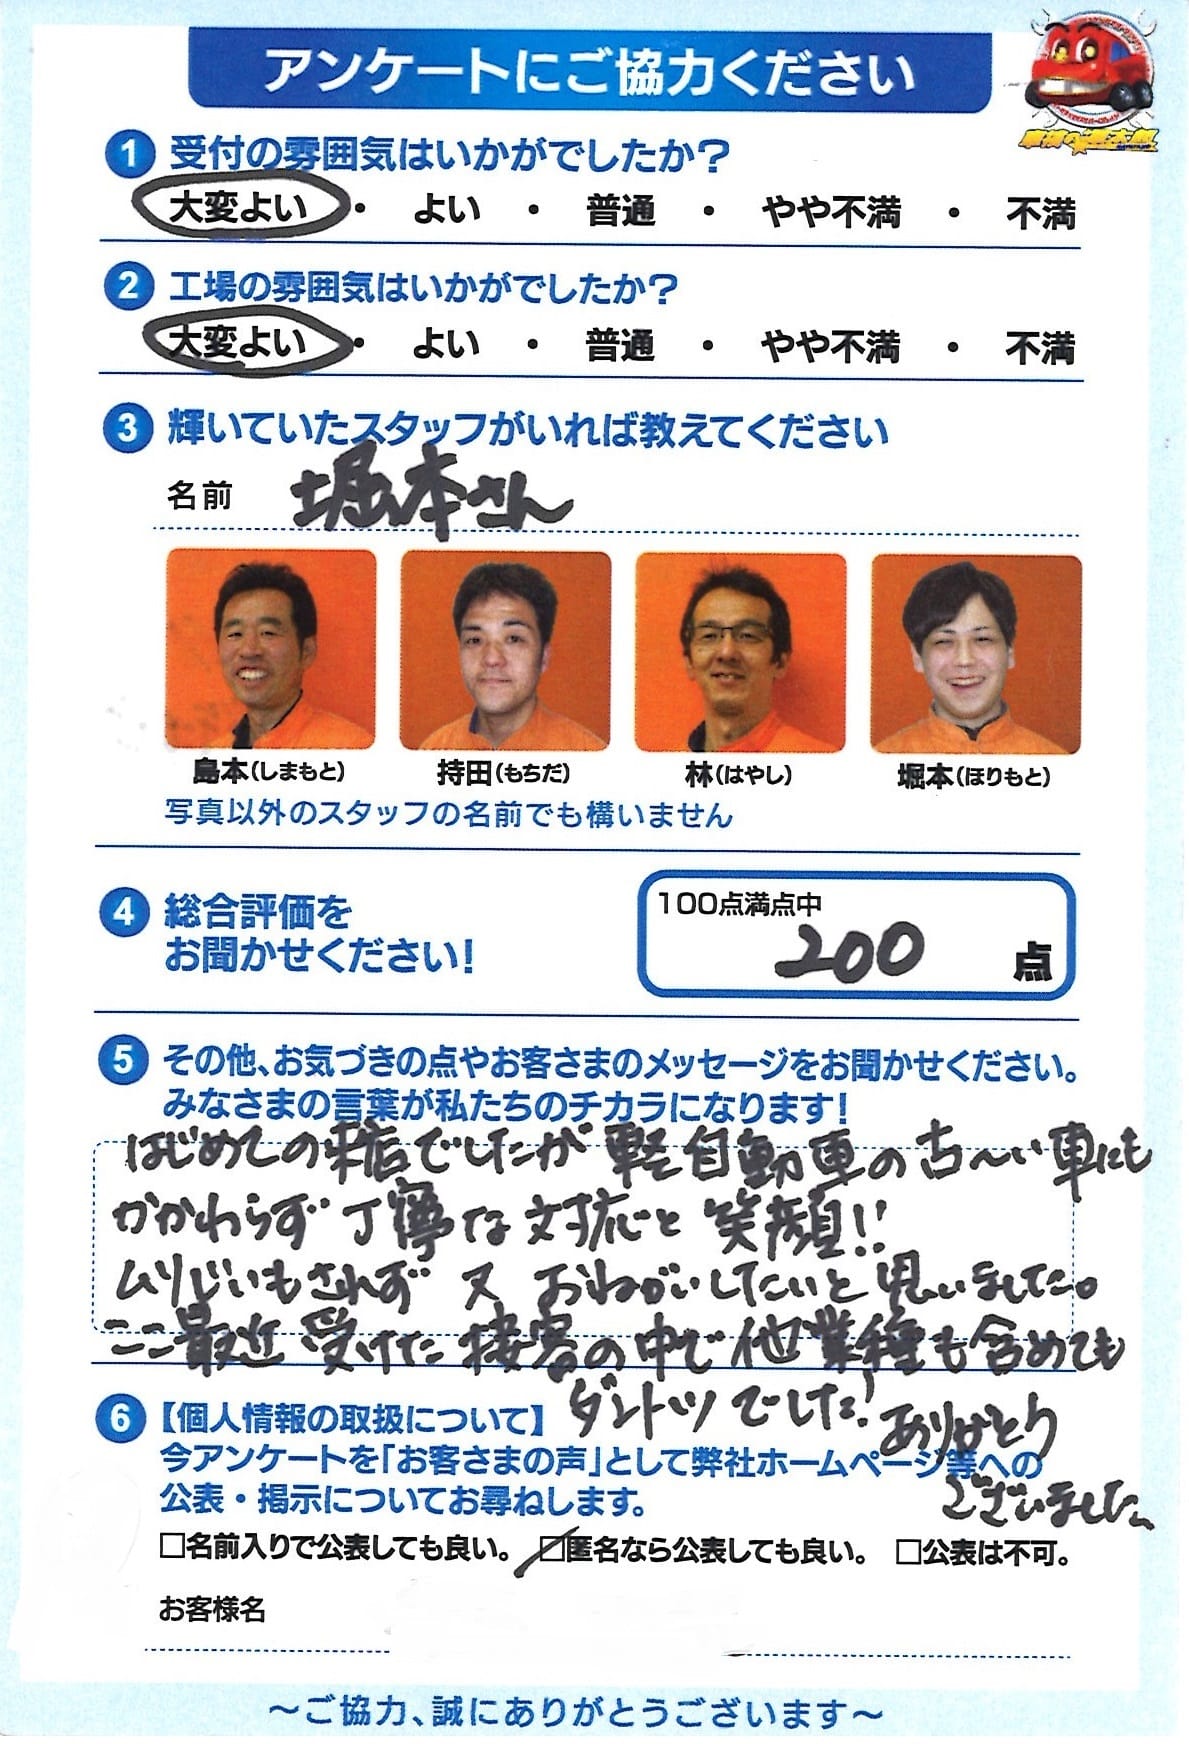 アンケートにご協力ください
1 受付の雰囲気はいかがでしたか?
大変よい ・ よい ・ 普通 ・ やや不満 ・ 不満
2 工場の雰囲気はいかがでしたか?
大変よい ・ よい ・ 普通 ・ やや不満 ・ 不満
3 輝いていたスタッフがいれば教えてください
名前 堀本さん
島本(しまもと) 持田(もちだ) 林(はやし) 堀本(ほりもと)
写真以外のスタッフの名前でも構いません
4 総合評価を
お聞かせください!
100点満点中
200 点
5 その他、お気づきの点やお客さまのメッセージをお聞かせください。
みなさまの言葉が私たちのチカラになります!
はじめての来店でしたが 軽自動車の古〜い車にも
かかわらず 丁寧な対応と笑顔!!
ムリじいもされず 又 おねがいしたいと思いました。
ここ最近受けた接客の中で他業種も含めても
ダントツでした! ありがとう
ございました。
6 【個人情報の取扱について】
今アンケートを「お客さまの声」として弊社ホームページ等への
公表・掲示についてお尋ねします。
□名前入りで公表しても良い。 □匿名なら公表しても良い。 □公表は不可。
お客様名
〜ご協力、誠にありがとうございます〜